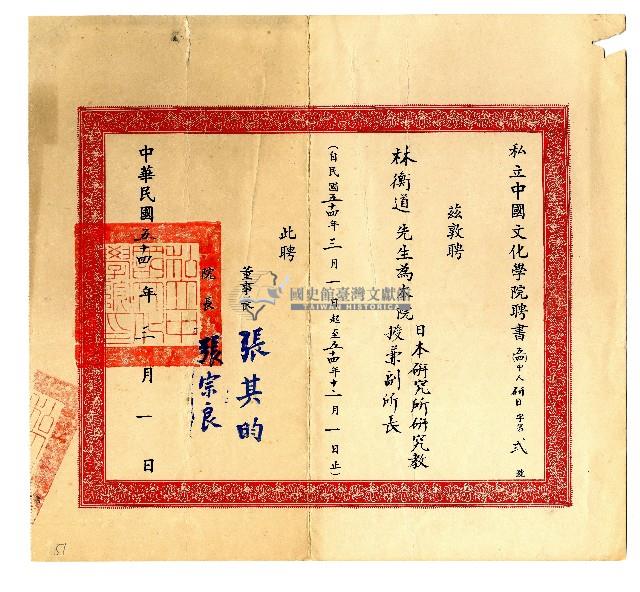 私立中國文化學院聘書 人研日字第弍號
茲敦聘
林衡道先生為本院日本研究所研究教授兼副所長
(自民國五十四年三月一日起至五十四年十二月一日止)
此聘
董事長 張其昀
院長 張宗良
中華民國五十四年三月一日
國史館臺灣文獻館
TAIWAN HISTORICA
51